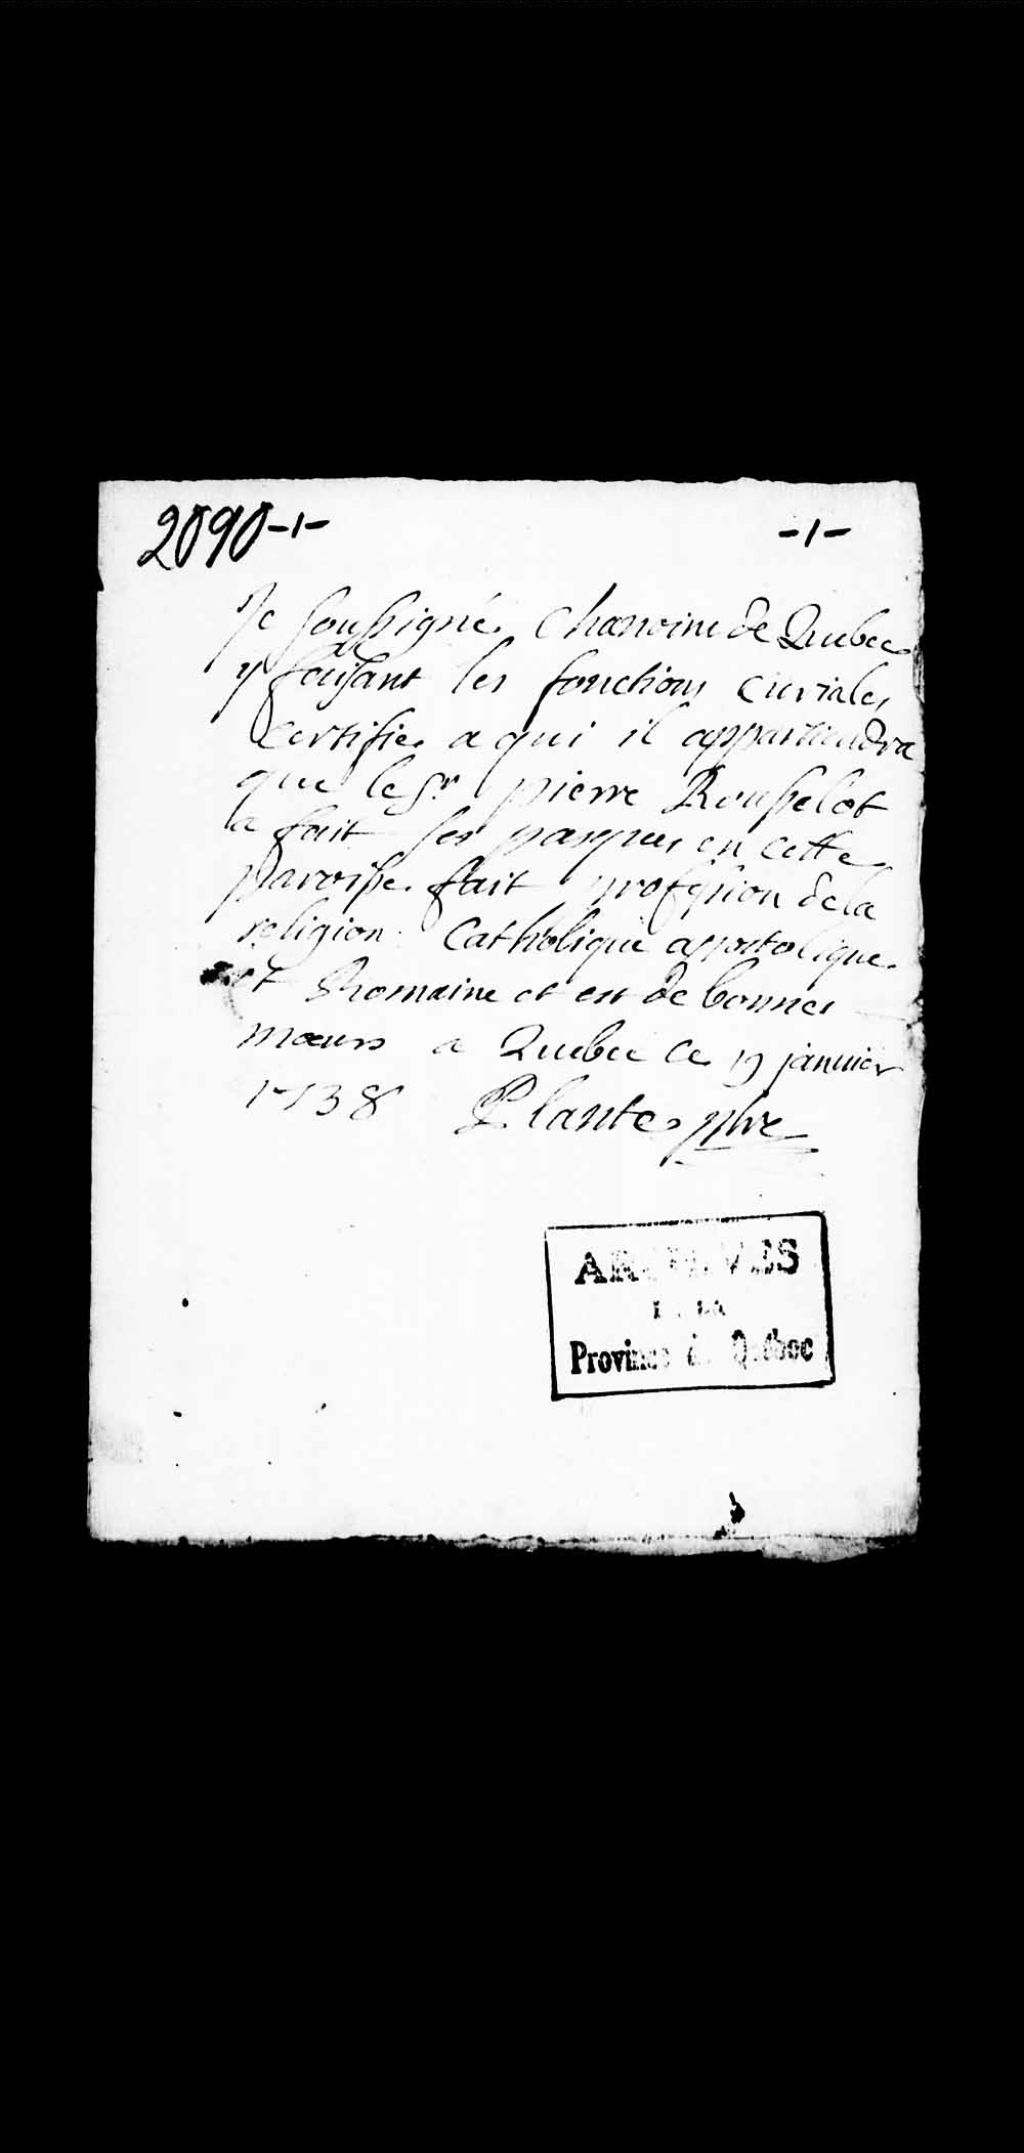 2090-1-
-1-
Je soussigné Chanoine de Quebec
y faisant les fonctions curiales
Certifie a qui il appartiendra
que le Sr pierre Rousselot
a fait ses pasques en cette
paroisse fait profession de la
religion Catholique apostolique
et Romaine et est de bonnes
mœurs a Quebec Ce 19 janvier
1738 Plante ptre
ARCHIVES
DE LA
Province de Québec